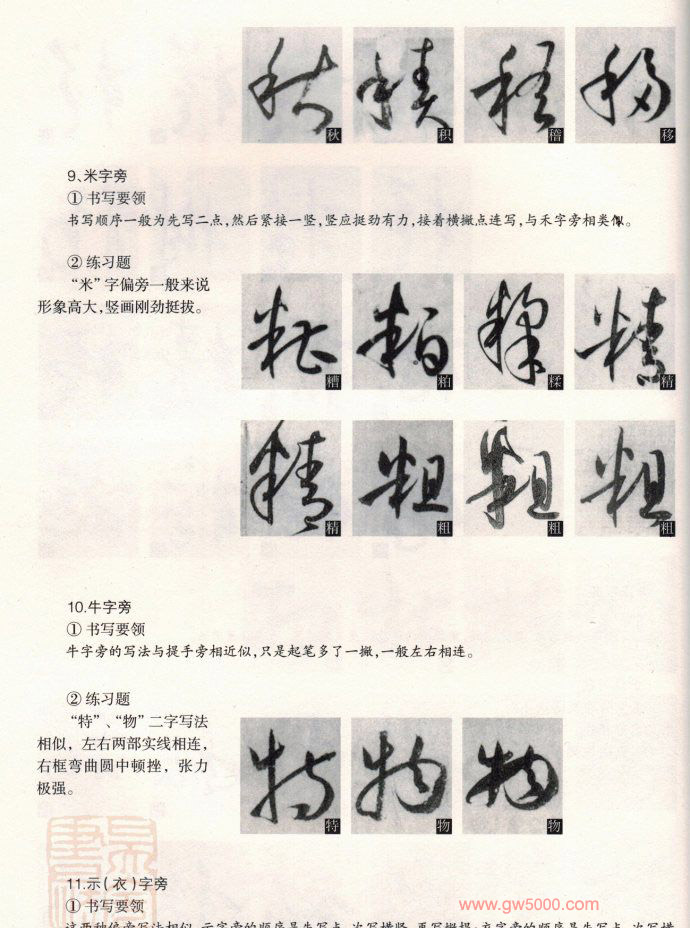 秋 积 稽 移
9、米字旁
① 书写要领
书写顺序一般为先写二点,然后紧接一竖,竖应挺劲有力,接着横撇点连写,与禾字旁相类似。
② 练习题
“米”字偏旁一般来说
形象高大,竖画刚劲挺拔。
糟 粕 糅 精
精 粗 粗 粗
10.牛字旁
① 书写要领
牛字旁的写法与提手旁相近似,只是起笔多了一撇,一般左右相连。
② 练习题
“特”、“物”二字写法
相似，左右两部实线相连,
右框弯曲圆中顿挫，张力
极强。
特 物 物
11.示(衣)字旁
① 书写要领
www.gw5000.com
这两种偏旁写法相似,示字旁的顺序是先写点,次写横竖,再写撇捺;衣字旁的顺序是先写点,次写横